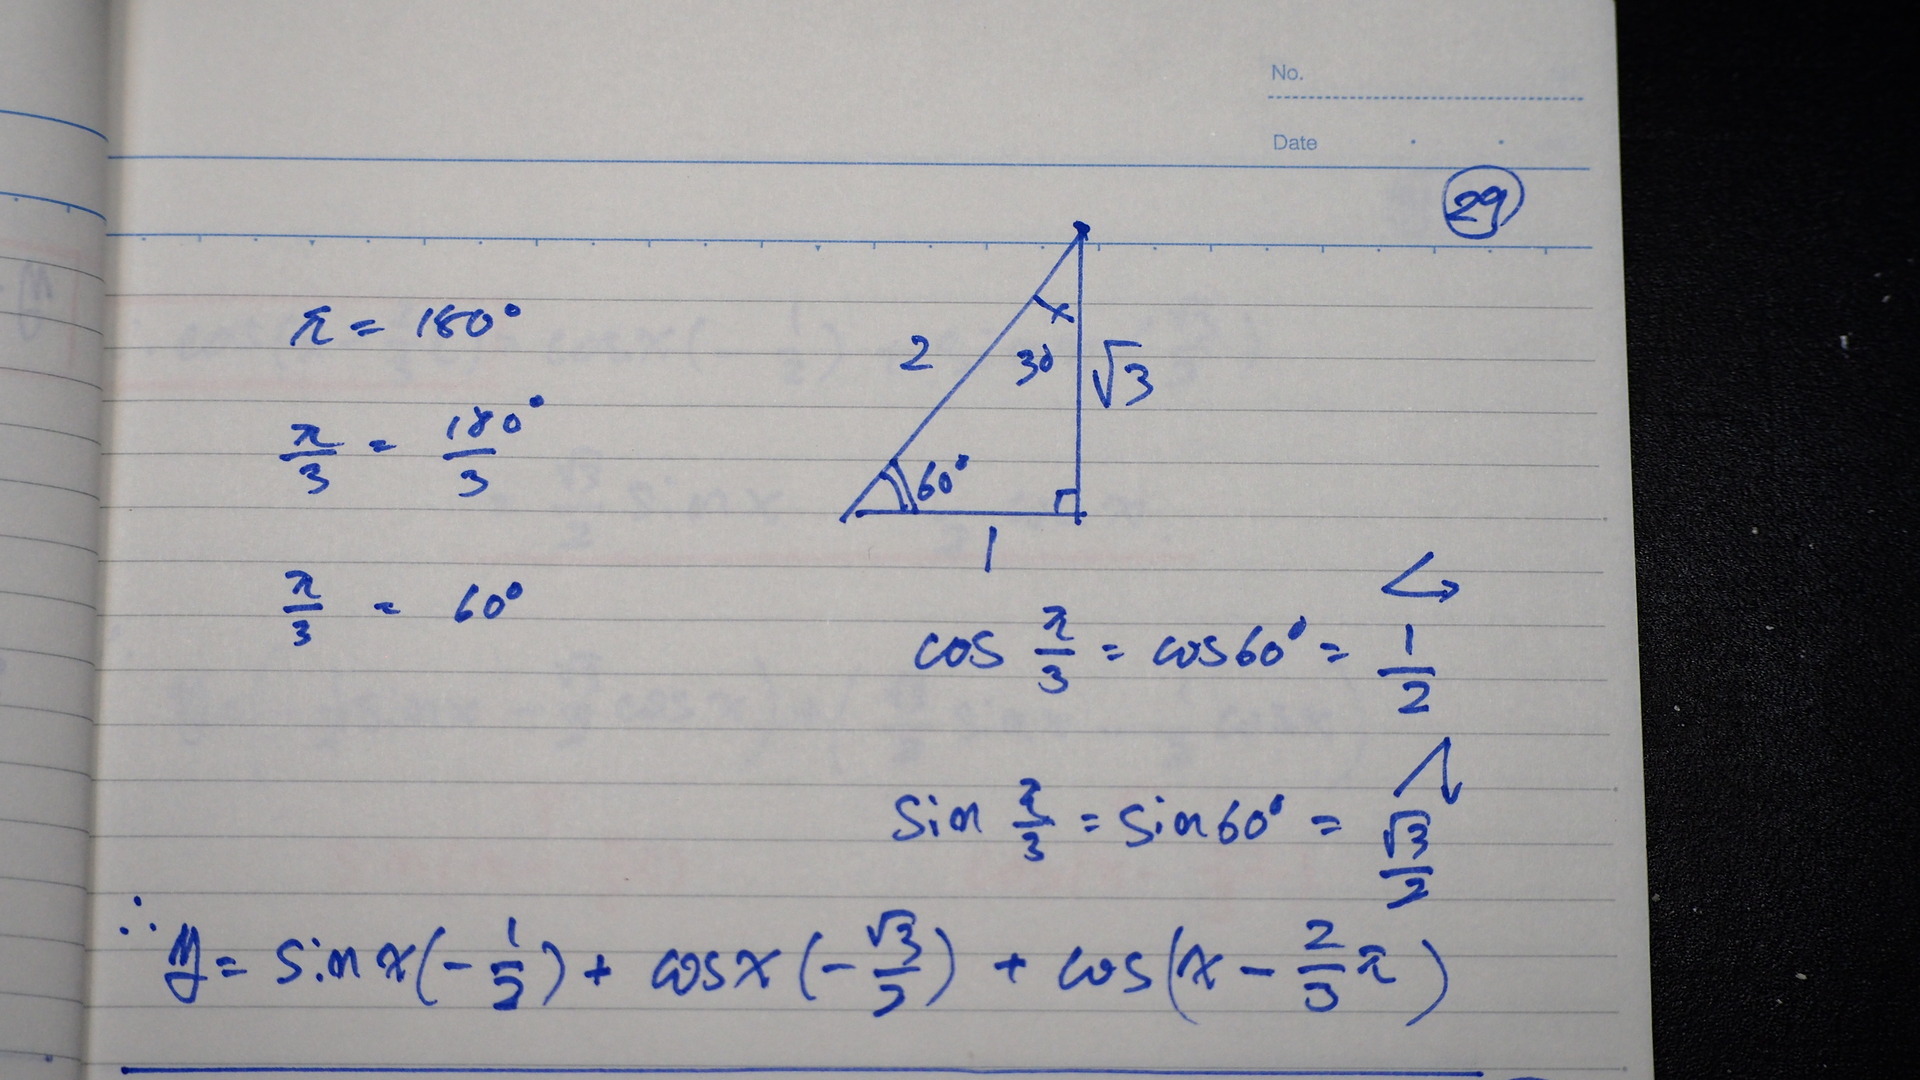 No.
Date
29
π = 180°
π/3 = 180°/3
π/3 = 60°
x
2
30
√3
60°
1
cos π/3 = cos60° = 1/2
sin π/3 = sin60° = √3/2
∴ y = sin x(-1/2) + cos x(-√3/2) + cos(x - 2/3 π)